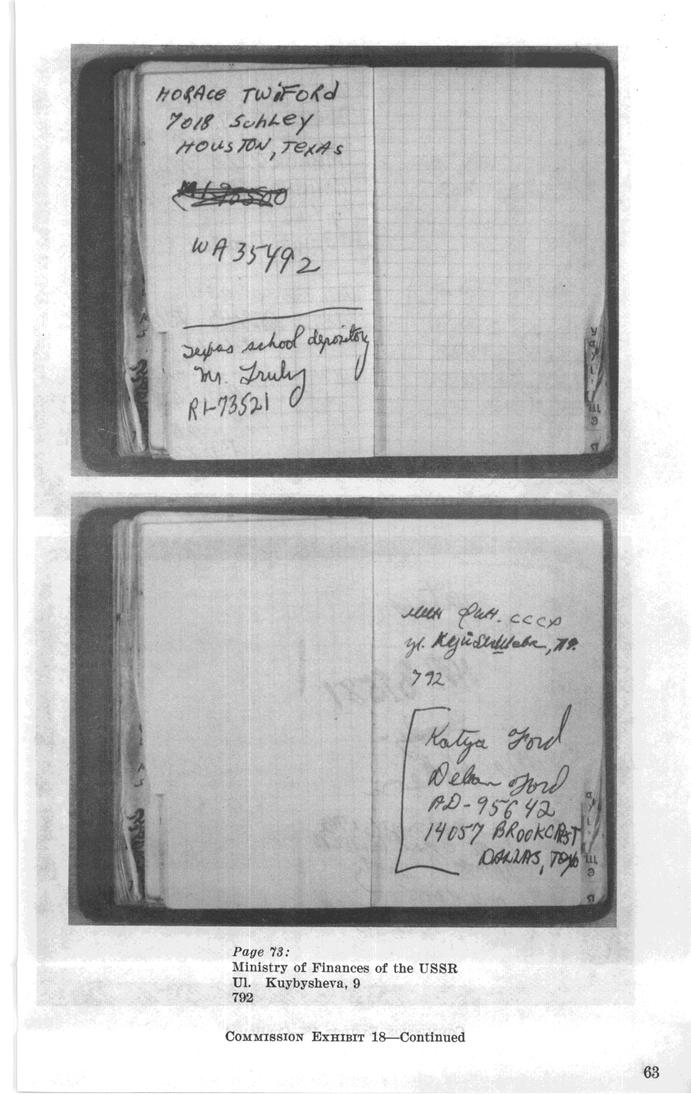 HORACE TWIFORD
7018 SCHLEY
HOUSTON, TEXAS
WA 35492
Texas school depository
Mr. Truly
RI-73521
мин фин. СССР
ул. Куйбышева,
792
Katya Ford
Delan Ford
AD-95642
14057 BROOKCRST
DALLAS, TEX
Page 73:
Ministry of Finances of the USSR
Ul. Kuybysheva, 9
792
COMMISSION EXHIBIT 18—Continued
63